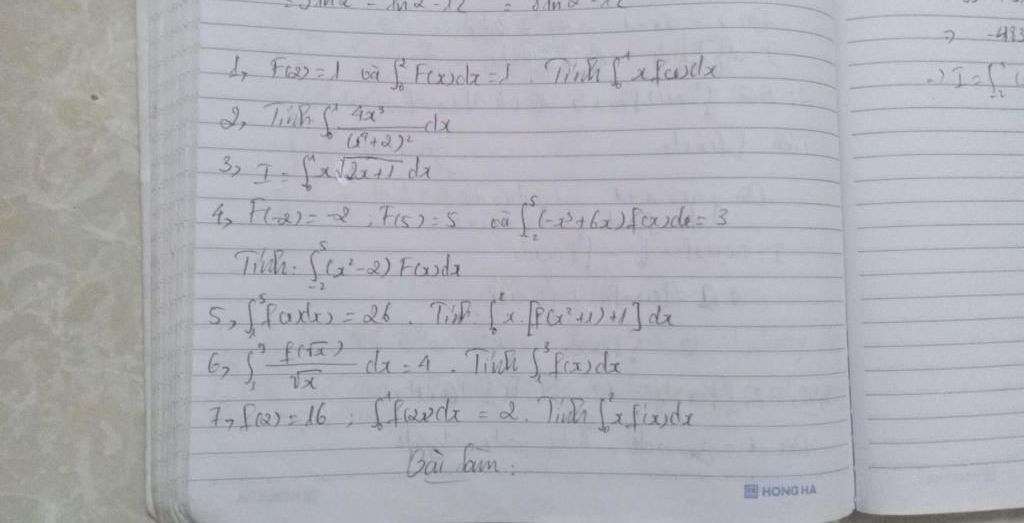 ⇒ -483
1, F(2)=1 và ∫₀² F(x)dx=1. Tính ∫₀¹ x f(x)dx
⇒ I=∫₋₂
2, Tính ∫₀¹ 4x³/(x⁴+2)² dx
3, I=∫₀¹ x√(2x+1) dx
4, F(-2)=-2, F(5)=5 và ∫₋₂⁵ (-x³+6x) f(x)dx=3
Tính: ∫₋₂⁵ (x²-2) F(x)dx
5, ∫₁⁵ f(x)dx) = 26. Tính ∫₀² x.[f(x²+1)+1] dx
6, ∫₁⁹ f(√x)/√x dx = 4. Tính ∫₁³ f(x)dx
7, f(2)=16; ∫₀¹ f(2x)dx = 2. Tính ∫₀² x f'(x)dx
Bài làm:
HONG HA